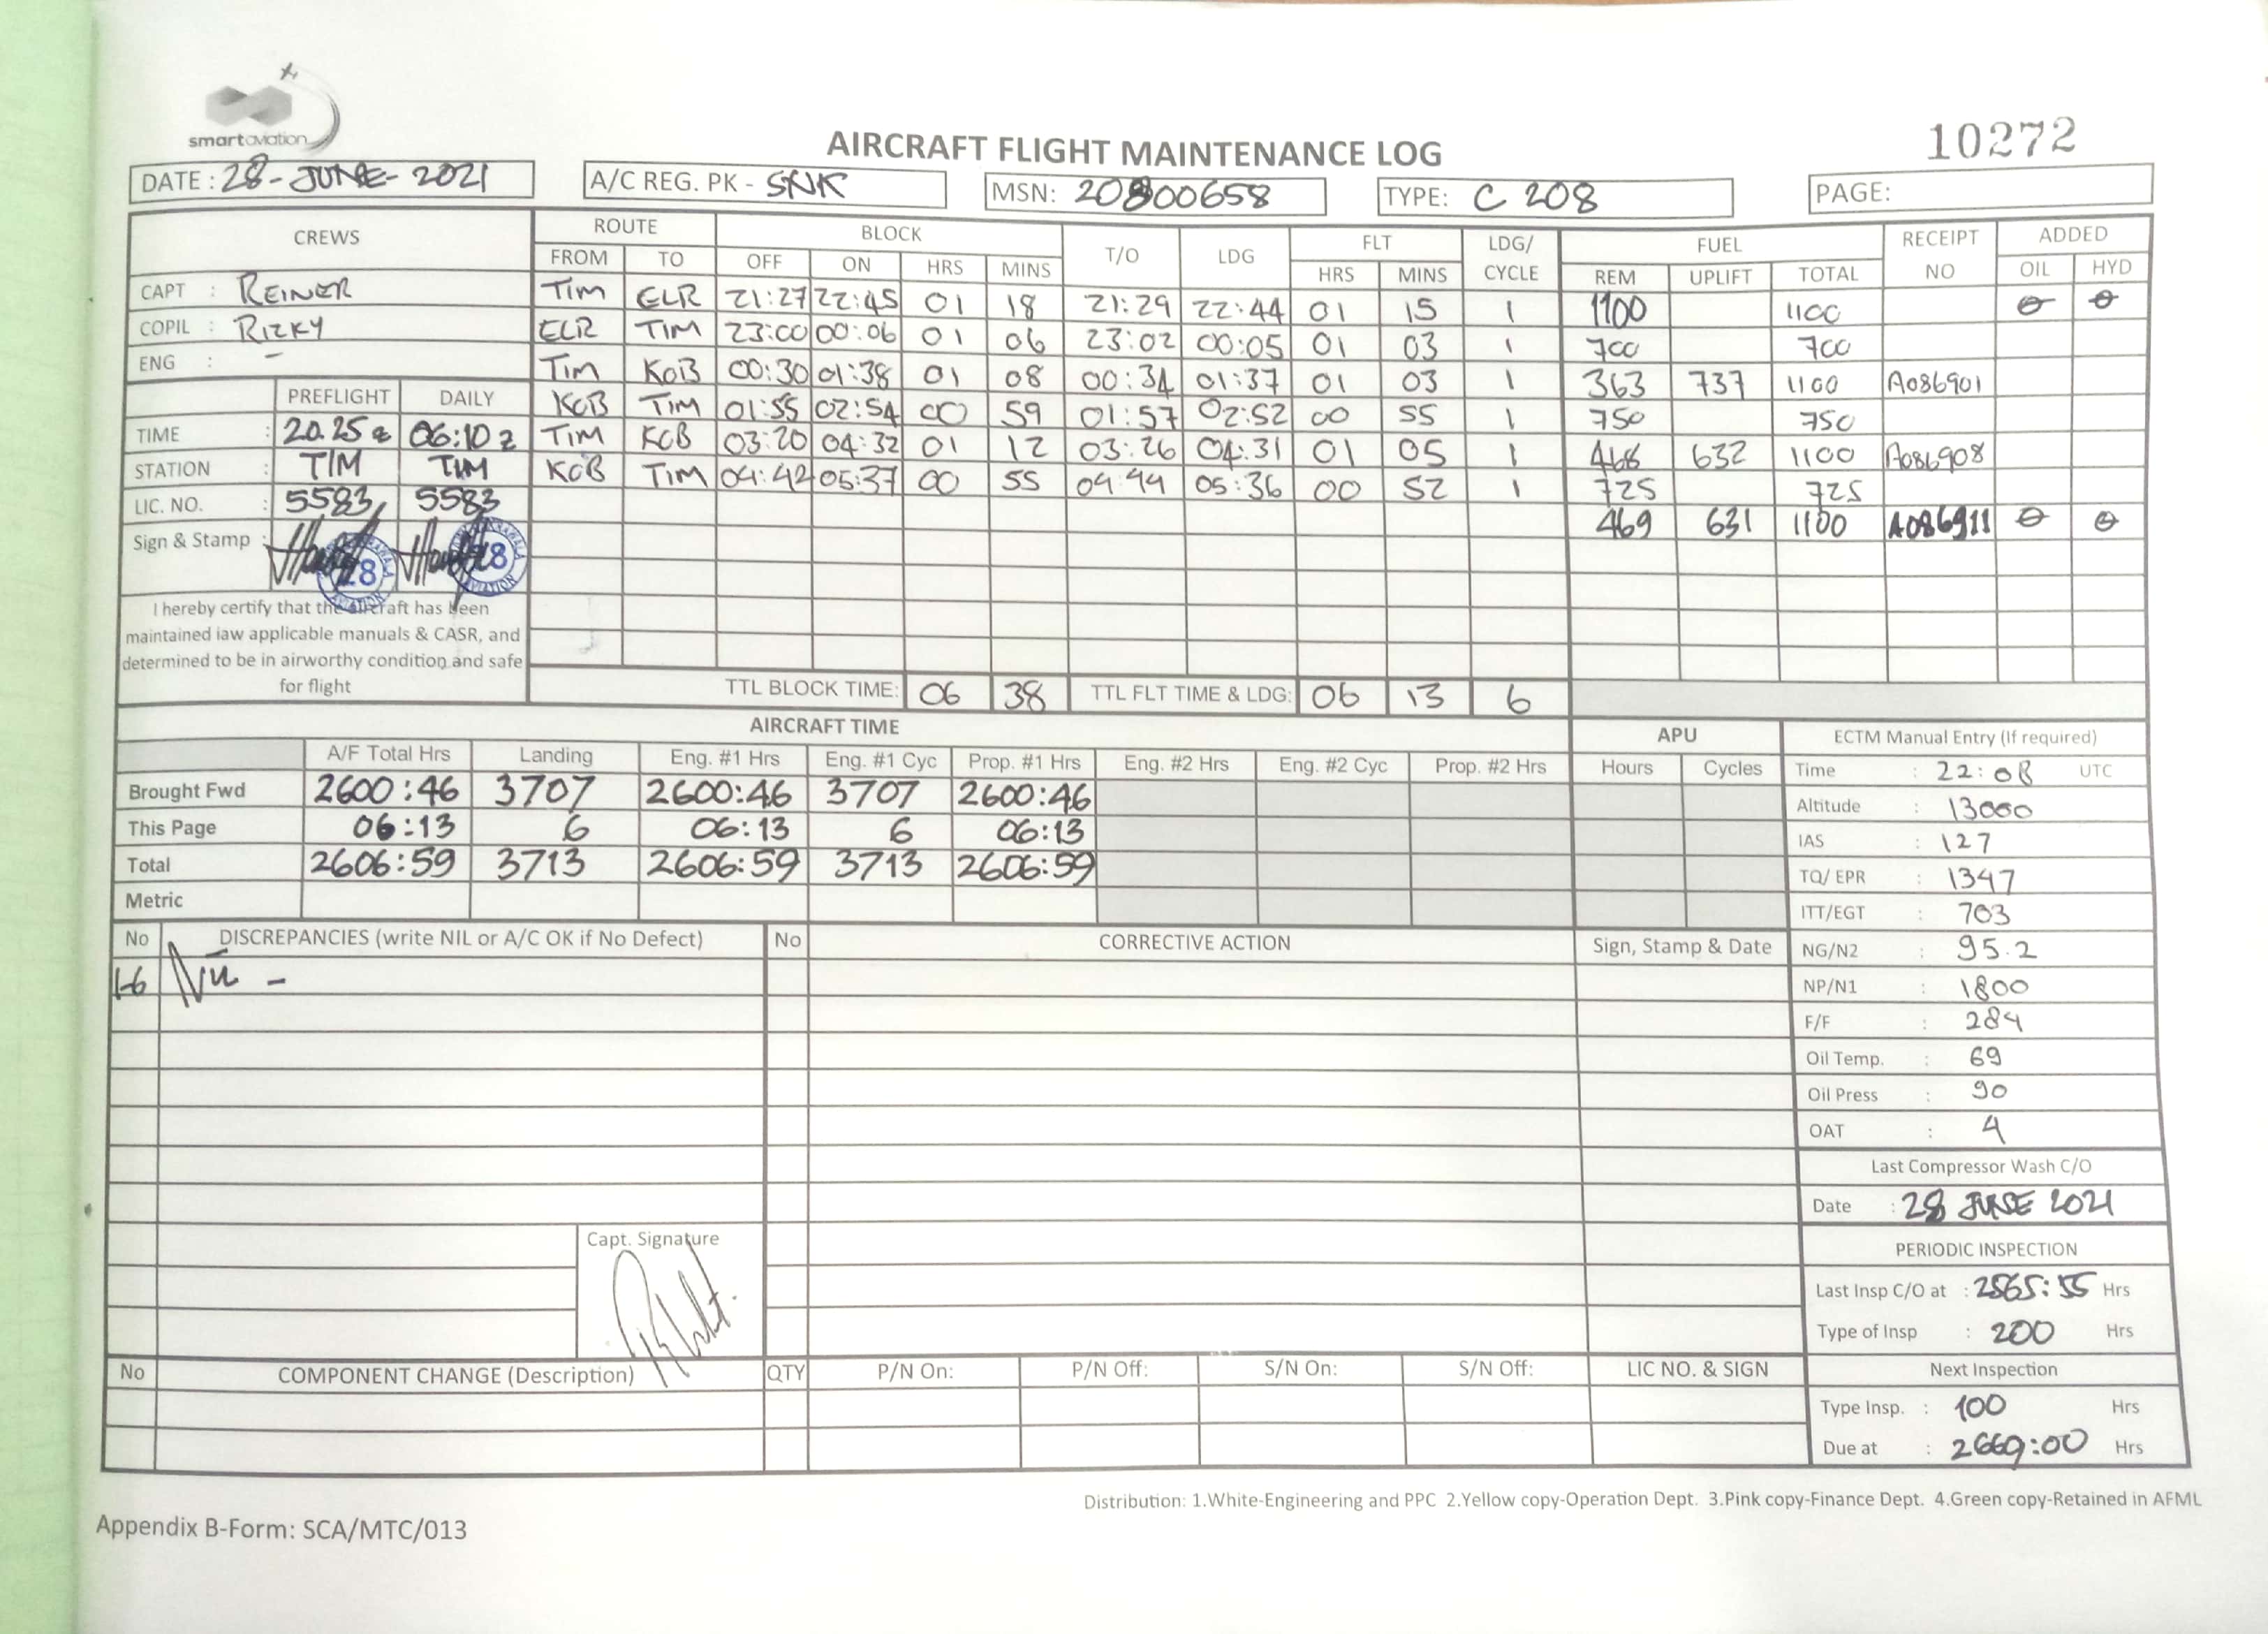 smart aviation
AIRCRAFT FLIGHT MAINTENANCE LOG
10272
DATE : 28-JUNE-2021 A/C REG. PK - SNK MSN: 20800658 TYPE: C 208 PAGE:
CREWS ROUTE BLOCK T/O LDG FLT LDG/ CYCLE FUEL RECEIPT NO ADDED
FROM TO OFF ON HRS MINS HRS MINS REM UPLIFT TOTAL OIL HYD
CAPT : REINER TIM ELR 21:27 22:45 01 18 21:29 22:44 01 15 1 1100 1100 0 0
COPIL : RIZKY ELR TIM 23:00 00:06 01 06 23:02 00:05 01 03 1 700 700
ENG : - TIM KOB 00:30 01:38 01 08 00:34 01:37 01 03 1 363 737 1100 A086901
PREFLIGHT DAILY KOB TIM 01:55 02:54 00 59 01:57 02:52 00 55 1 750 750
TIME : 20.25 z 06:10 z TIM KOB 03:20 04:32 01 12 03:26 04:31 01 05 1 468 632 1100 A086908
STATION : TIM TIM KOB TIM 04:42 05:37 00 55 04:44 05:36 00 52 1 725 725
LIC. NO. : 5583 5583 469 631 1100 A086911 0 0
Sign & Stamp : 28 28
AVIATION AVIATION
I hereby certify that the aircraft has been
maintained iaw applicable manuals & CASR, and
determined to be in airworthy condition and safe
for flight
TTL BLOCK TIME: 06 38 TTL FLT TIME & LDG: 06 13 6
AIRCRAFT TIME APU ECTM Manual Entry (If required)
A/F Total Hrs Landing Eng. #1 Hrs Eng. #1 Cyc Prop. #1 Hrs Eng. #2 Hrs Eng. #2 Cyc Prop. #2 Hrs Hours Cycles Time : 22:08 UTC
Brought Fwd 2600:46 3707 2600:46 3707 2600:46 Altitude : 13000
This Page 06:13 6 06:13 6 06:13 IAS : 127
Total 2606:59 3713 2606:59 3713 2606:59 TQ/ EPR : 1347
Metric ITT/EGT : 703
No DISCREPANCIES (write NIL or A/C OK if No Defect) No CORRECTIVE ACTION Sign, Stamp & Date NG/N2 : 95.2
1-6 Nil - NP/N1 : 1800
F/F : 284
Oil Temp. : 69
Oil Press : 90
OAT : 4
Last Compressor Wash C/O
Date : 28 JUNE 2021
Capt. Signature PERIODIC INSPECTION
Last Insp C/O at : 2565:55 Hrs
Type of Insp : 200 Hrs
No COMPONENT CHANGE (Description) QTY P/N On: P/N Off: S/N On: S/N Off: LIC NO. & SIGN Next Inspection
Type Insp. : 100 Hrs
Due at : 2669:00 Hrs
Distribution: 1.White-Engineering and PPC 2.Yellow copy-Operation Dept. 3.Pink copy-Finance Dept. 4.Green copy-Retained in AFML
Appendix B-Form: SCA/MTC/013